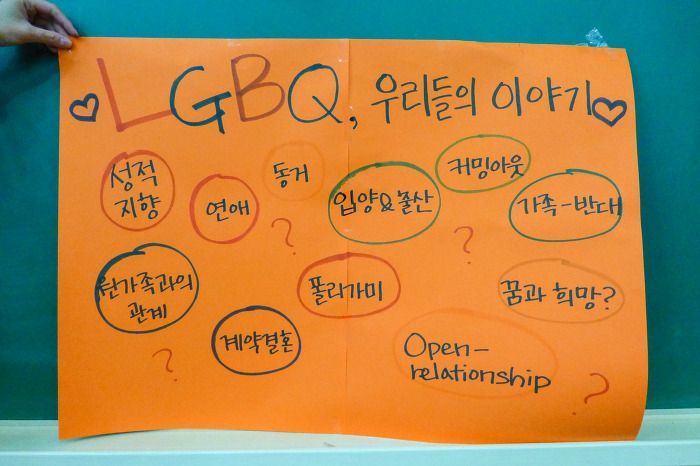 LGBQ, 우리들의 이야기
성적
지향
연애
동거
입양&출산
커밍아웃
가족-반대
?
?
원가족과의
관계
계약결혼
폴리가미
꿈과 희망?
Open-
relationship
?
?